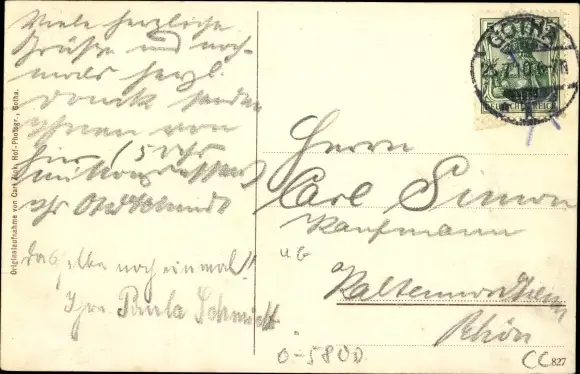 Viele herzliche
Grüße und noch-
mals herzl.
Dank senden
Ihnen von
hier
Ihr
dasselbe noch einmal!
Ihre Paula Schmidt
Originalaufnahme von Carl Zink, Hof-Photogr., Gotha.
GOTHA
DEUTSCHES REICH
Herrn
Carl Simon
Kaufmann
Kaltennordheim
Rhön
0-5800
CC 827